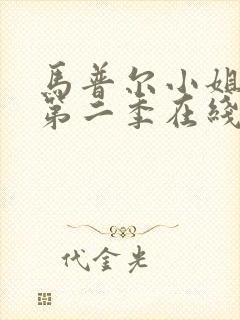 馬普尔小姐
第二季在綫
代金光